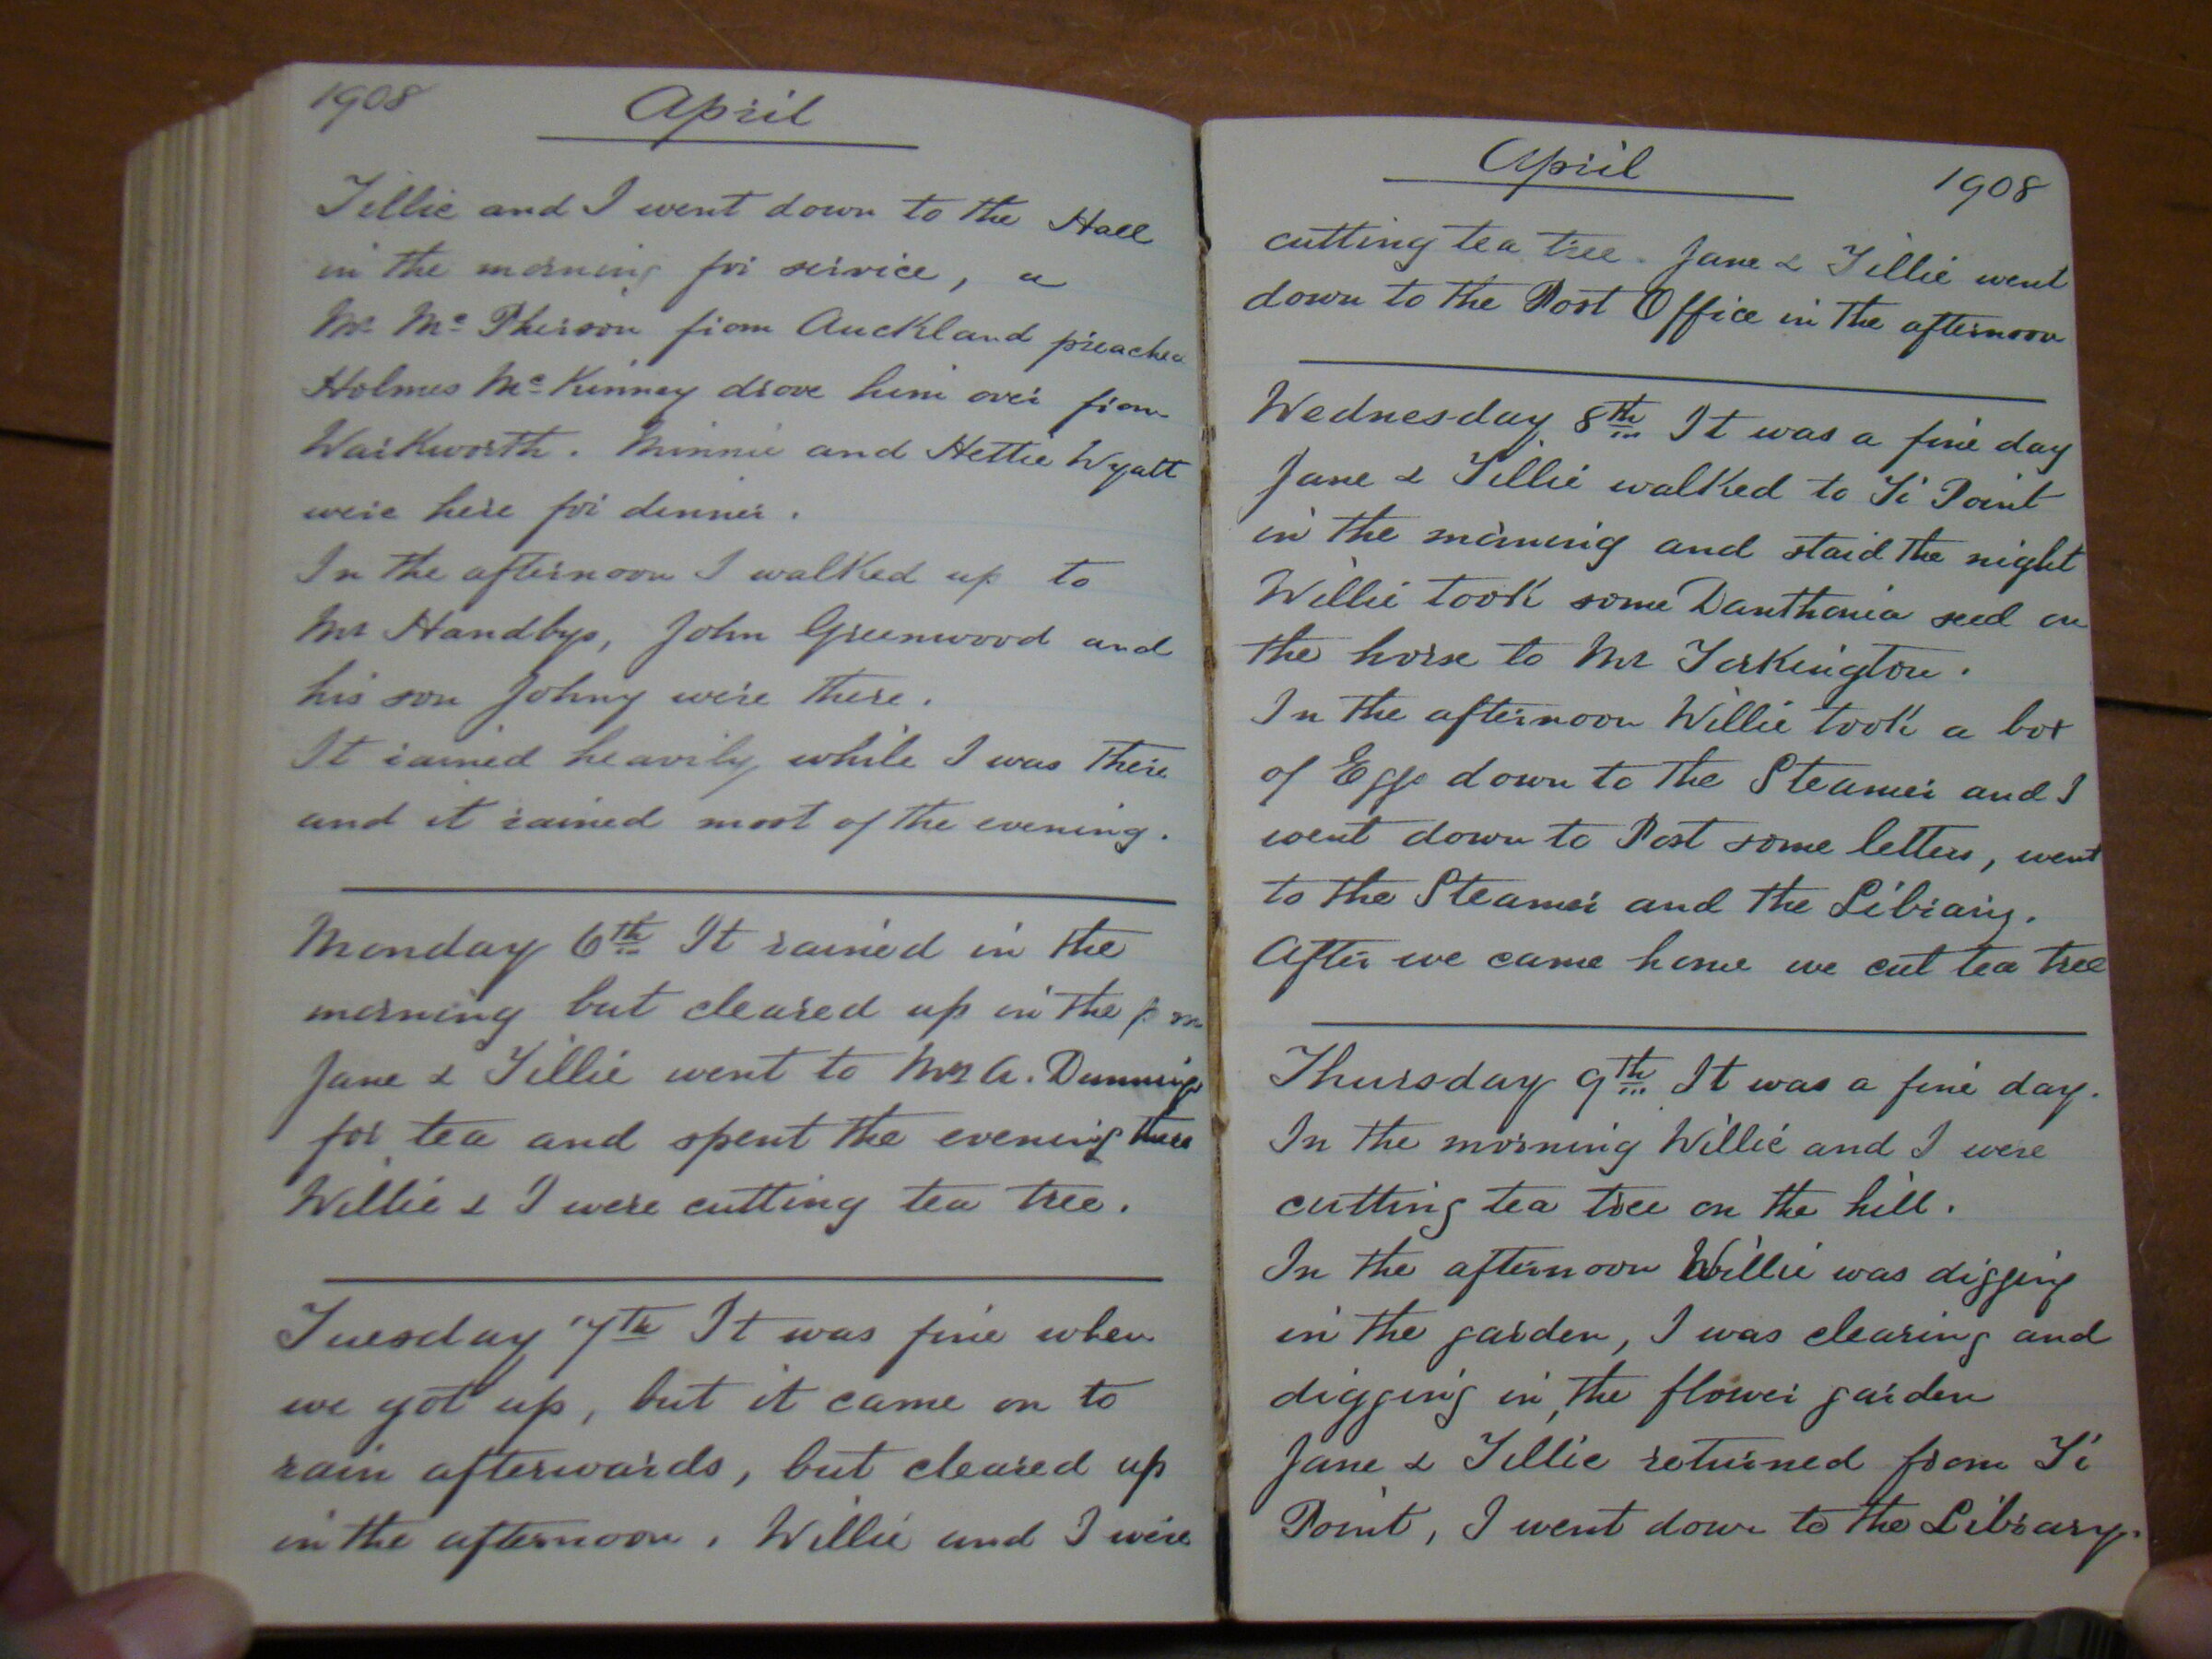 1908 April
Tillie and I went down to the Hall
in the morning for service, a
Mr McPherson from Auckland preached
Holmes McKinney drove him over from
Warkworth. Minnie and Hettie Wyatt
were here for dinner.
In the afternoon I walked up to
Mr Handbys, John Greenwood and
his son Johny were there.
It rained heavily while I was there
and it rained most of the evening.
Monday 6th It rained in the
morning but cleared up in the p m
Jane & Tillie went to Mrs A. Dunnings
for tea and spent the evening there
Willie & I were cutting tea tree.
Tuesday 7th It was fine when
we got up, but it came on to
rain afterwards, but cleared up
in the afternoon. Willie and I were
April 1908
cutting tea tree. Jane & Tillie went
down to the Post Office in the afternoon
Wednesday 8th It was a fine day
Jane & Tillie walked to Ti Point
in the morning and staid the night
Willie took some Danthonia seed on
the horse to Mr Torkington.
In the afternoon Willie took a box
of Eggs down to the Steamer and I
went down to Post some letters, went
to the Steamer and the Library.
After we came home we cut tea tree
Thursday 9th It was a fine day.
In the morning Willie and I were
cutting tea tree on the hill.
In the afternoon Willie was digging
in the garden, I was clearing and
digging in the flower garden
Jane & Tillie returned from Ti
Point, I went down to the Library.